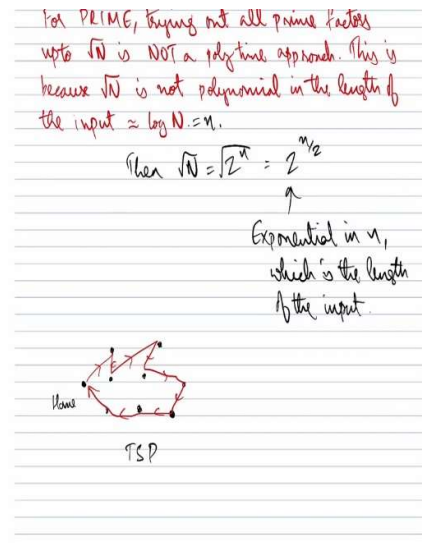 For PRIME, trying out all prime factors
upto √N is NOT a poly time approach. This is
because √N is not polynomial in the length of
the input ≈ log N. = n.
Then √N = √2^n = 2^{n/2}
Exponential in n,
which is the length
of the input.
Home
TSP